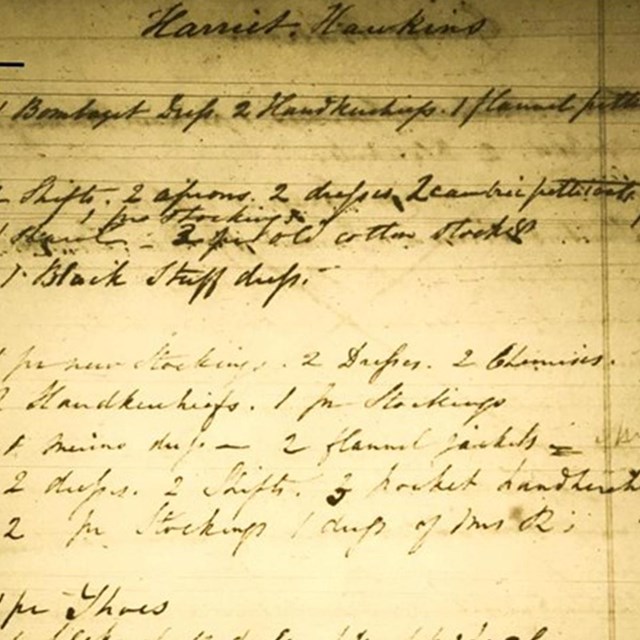 Harriet Hawkins
1 Bombazet Dress. 2 Handkerchiefs. 1 flannel pett
2 Shifts. 2 aprons. 2 dresses, 2 cambric petticoats
1 pr Stockings
1 2 pr old cotton stocks
1 Black Stuff dress.
1 pr new Stockings. 2 Dresses. 2 Chemises.
2 Handkerchiefs. 1 pr Stockings
dress — 2 flannel jackets =
2 dresses. 2 Shifts. 3 pocket handkerch
2 pr Stockings 1 dress of Mrs R;
1 pr Shoes